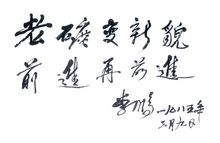 老礦变新貌
前進再前進
李鹏
一九八五年
六月九日